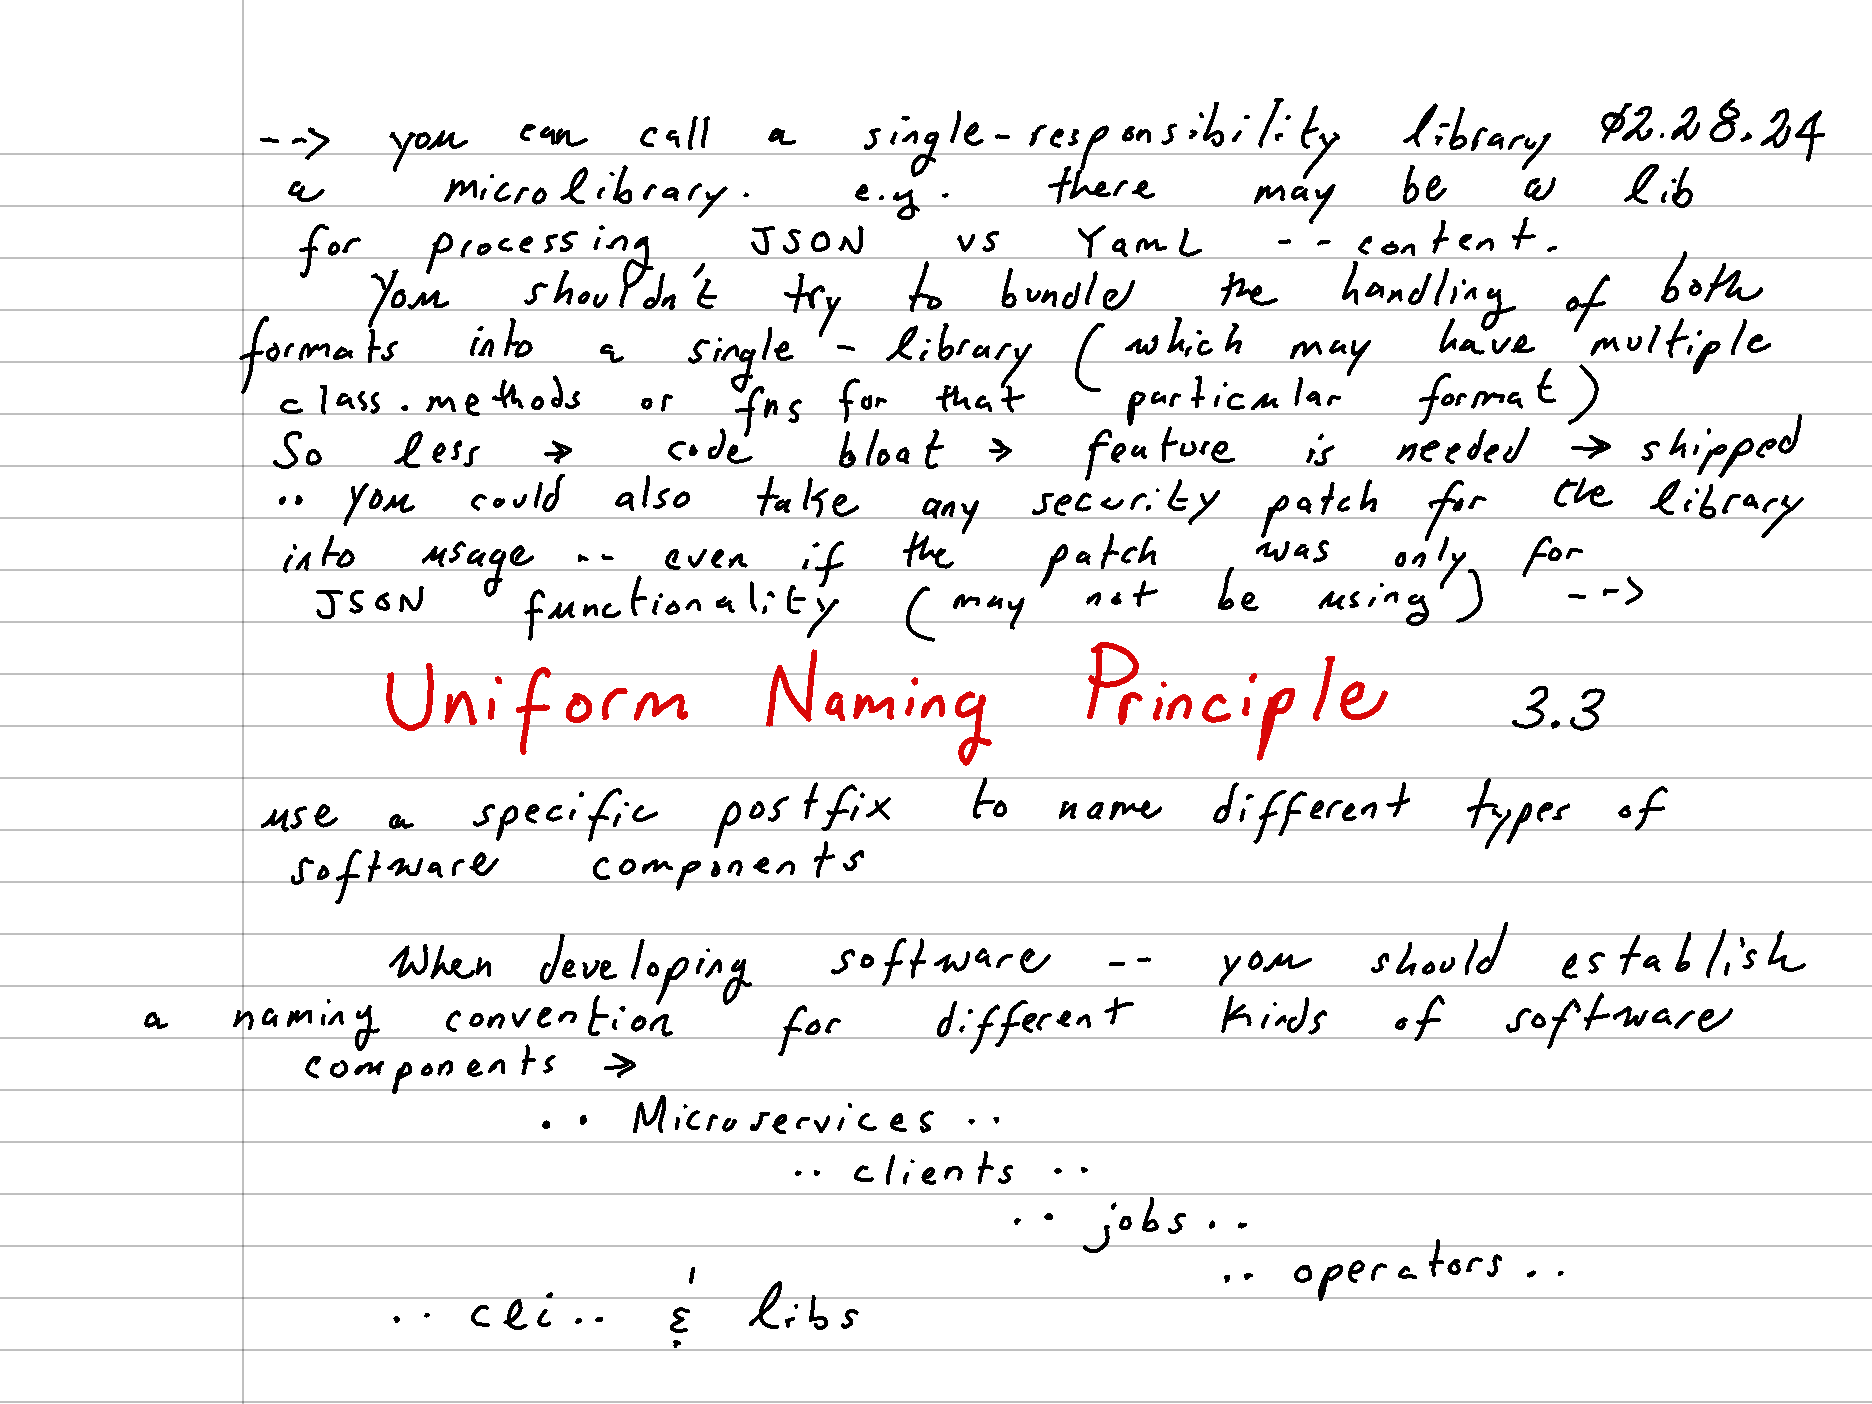 --> you can call a single-responsibility library 02.28.24
a microlibrary. e.g. there may be a lib
for processing JSON vs YamL -- content.
You shouldn't try to bundle the handling of both
formats into a single - library (which may have multiple
class.methods or fns for that particular format)
So less → code bloat → feature is needed → shipped
.. you could also take any security patch for the library
into usage -- even if the patch was only for
JSON functionality (may not be using) -->
Uniform Naming Principle 3.3
use a specific postfix to name different types of
software components
When developing software -- you should establish
a naming convention for different kinds of software
components →
.. Microservices ..
.. clients ..
.. jobs ..
.. operators ..
.. cli .. & libs